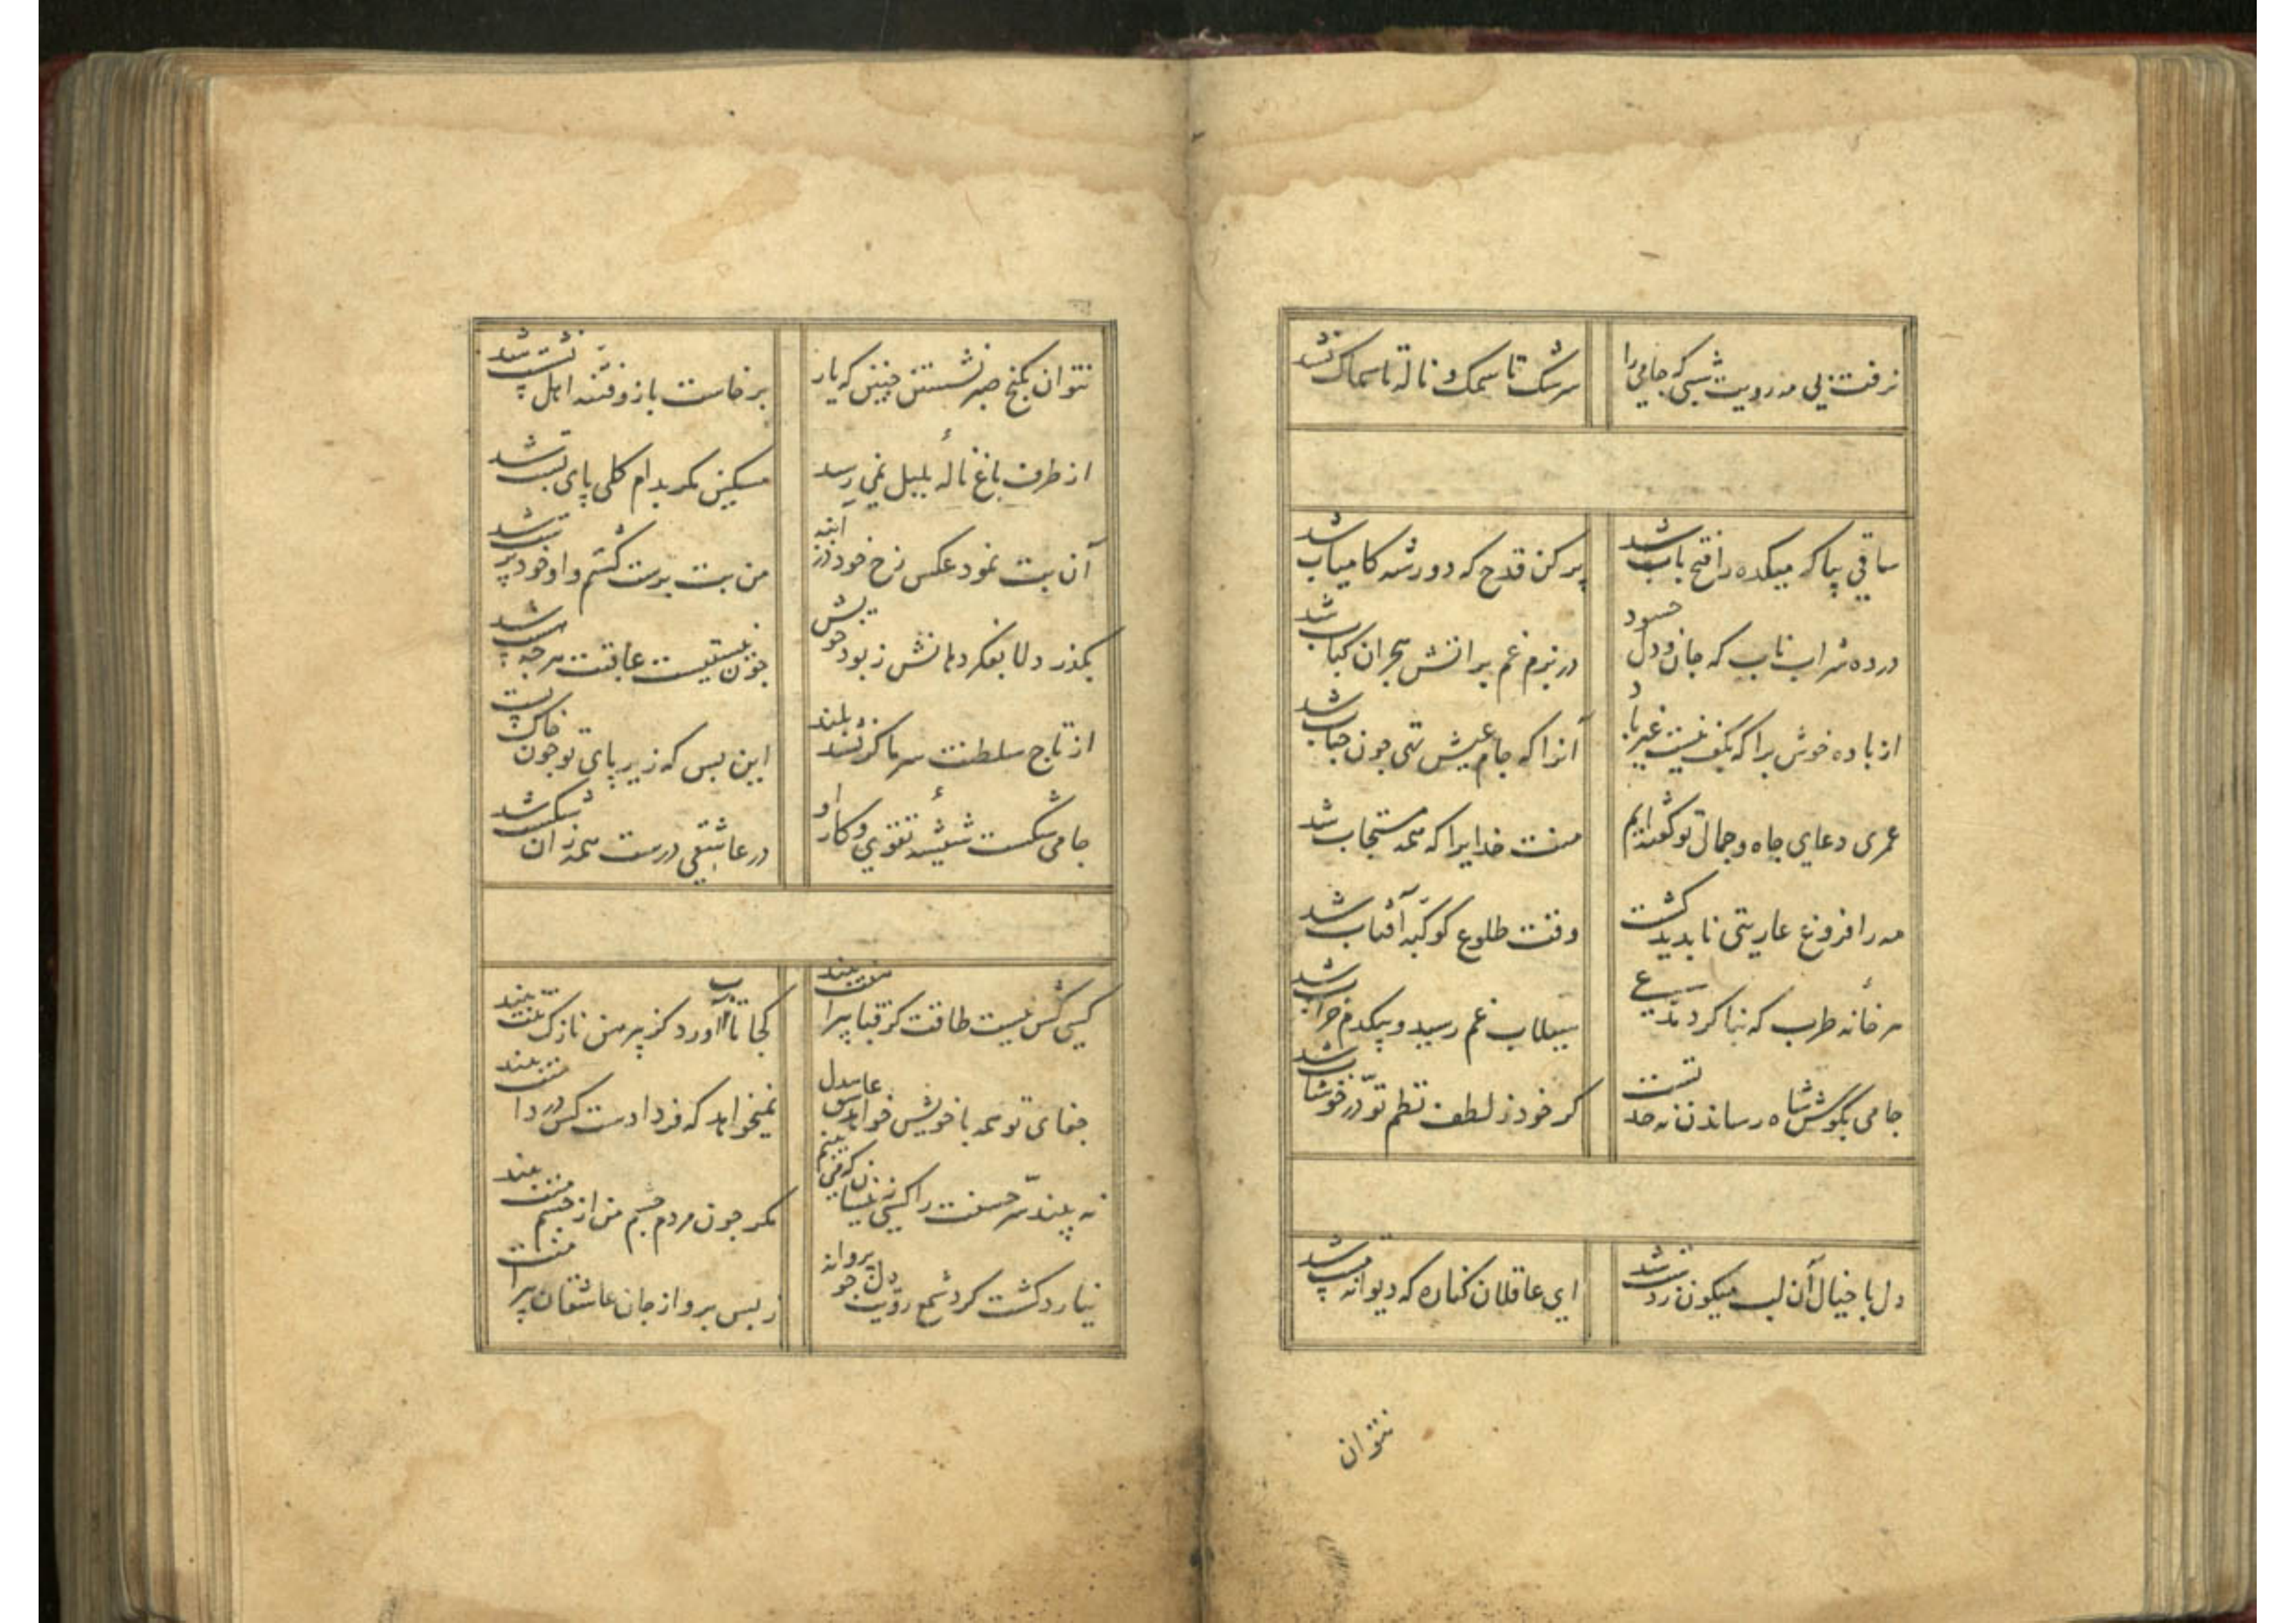 نرفت بی مه رویت شبی که جامی را
سرشک تا سمک و ناله تا سماک نشد
ساقی بیا که میکده را فتح باب شد
پر کن قدح که دور شه کامیاب شد
در ده شراب ناب که جان و دل حسود
در بزم غم بر آتش هجران کباب شد
از باده خوش برا که بکف نیست غیر باد
آنرا که جام عیش تهی چون حباب شد
عمری دعای جاه و جمال تو گفته‌ایم
منت خدایرا که همه مستجاب شد
مه را فروغ عاریتی ناپدید گشت
وقت طلوع کوکبه آفتاب شد
هر خانه طرب که بنا کرد
سیلاب غم رسید و بیکدم خراب شد
جامی بگوش شاه رساندن نه حد تست
گر خود ز لطف نظم تو در خوشاب شد
دل با خیال آن لب میگون ز دست شد
ای عاقلان کناره که دیوانه مست شد
نتوان
نتوان بکنج صبر نشستن چنین که یار
برخاست باز و فتنه اهل نشست شد
از طرف باغ ناله بلبل نمی رسد
مسکین مگر بدام گلی پای بست شد
آن بت نمود عکس رخ خود در آینه
من بت پرست گشتم و او خود پرست شد
بگذر دلا بفکر دهانش ز بود خویش
چون نیستیست عاقبت هرچه هست شد
از تاج سلطنت سر ما گر نشد بلند
این بس که زیر پای تو چون خاک پست شد
جامی شکست شیشه تقوی و کار او
در عاشقی درست همه زان شکست شد
کسی کش نیست طاقت کز قبا پیراهنت بیند
کجا تاب آورد کز پیرهن نازک تنت بیند
جفای تو همه با خویش خواهد عاشق بیدل
نمیخواهد که فردا دست کس در دامنت بیند
نه بیند سر حسنت را کسی زینسان که می بینم
مگر چون مردم چشم من از چشم منت بیند
نیارد گشت گرد شمع رویت دل چو پروانه
ز بس پرواز جان عاشقان پیرامنت